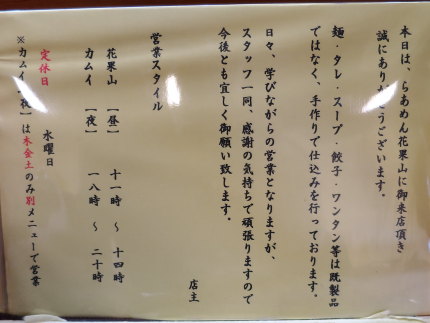 本日は、らあめん花果山に御来店頂き
誠にありがとうございます。
麺・タレ・スープ・餃子・ワンタン等は既製品
ではなく、手作りで仕込みを行っております。
日々、学びながらの営業となりますが、
スタッフ一同、感謝の気持ちで頑張りますので
今後とも宜しく御願い致します。
店主
営業スタイル
花果山 【昼】 十一時 〜 十四時
カムイ 【夜】 十八時 〜 二十時
定休日 水曜日
※カムイ【夜】は木金土のみ別メニューで営業